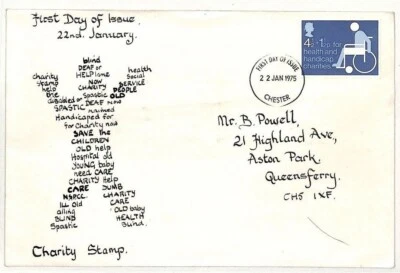 First Day of Issue.
22nd January.
blind
DEAF or health
charity HELP lane Social
stamp NOW SERVICE
help CHARITY PEOPLE
one Spastic OLD
disabled or DEAF now
SPASTIC maimed
Handicapped for
for Charity nod
SAVE the
CHILDREN
OLD help
Hospital old
YOUNG baby
need CARE
CHARITY Help
CARE DUMB
NSPCC. HEALTH
ILL Old CARE
ailing OLD baby
BLIND HEALTH
Spastic Blind.
Charity Stamp.
FIRST DAY OF ISSUE
22 JAN 1975
CHESTER
4½+1½p for
health and
handicap
charities
Mr. B. Powell,
21 Highland Ave,
Aston Park,
Queensferry.
CH5 1XF.